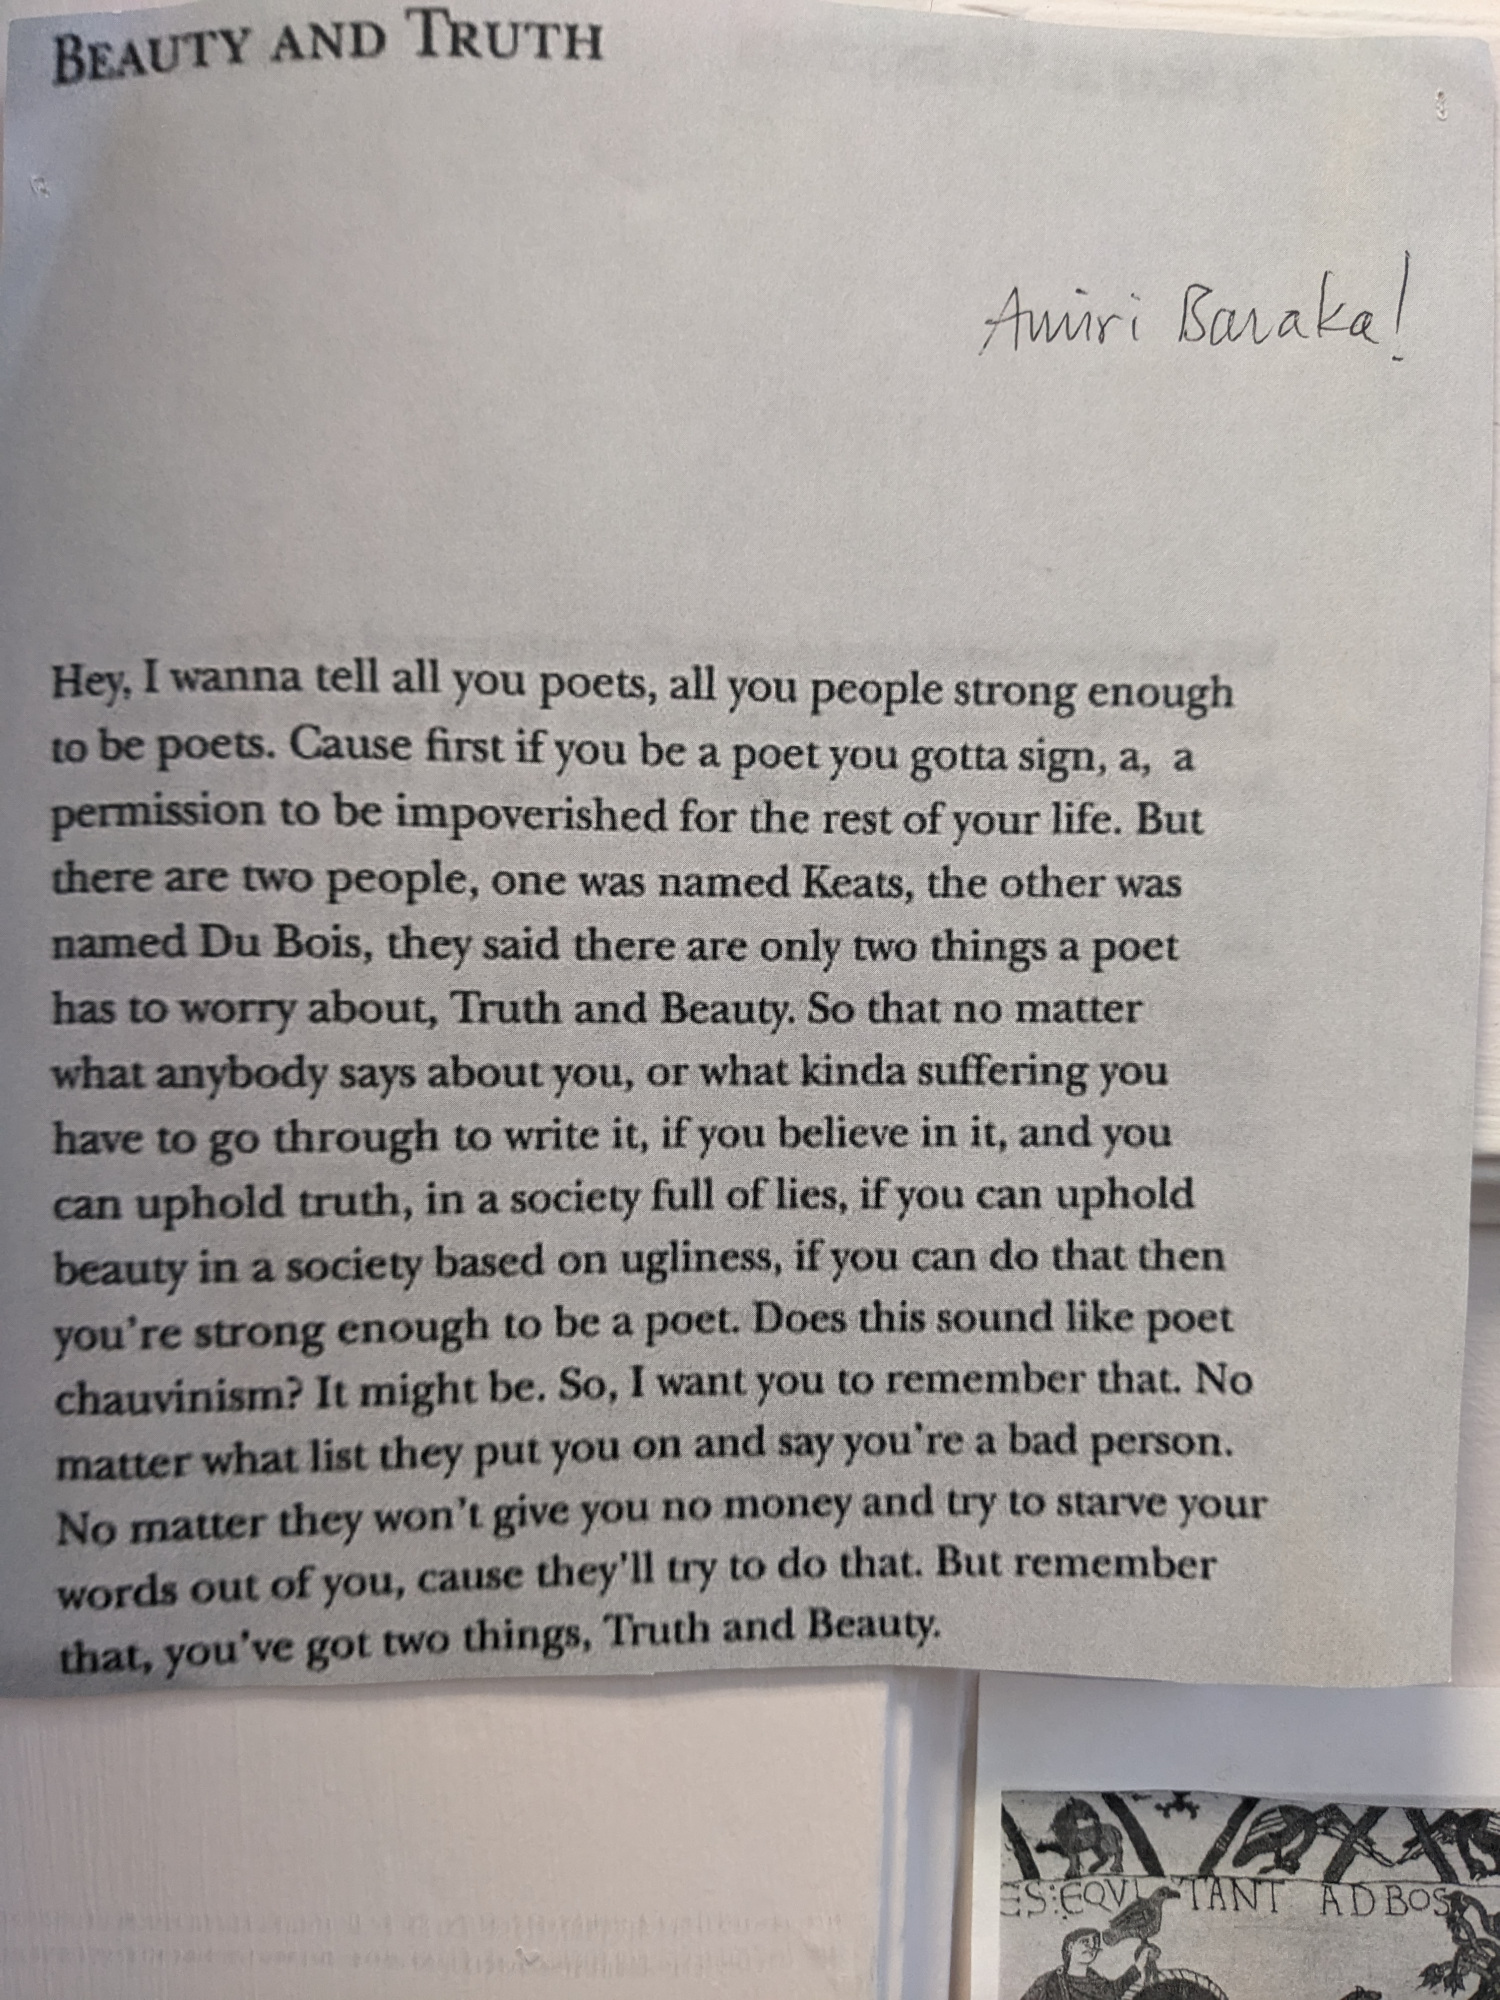 BEAUTY AND TRUTH
Amiri Baraka!
Hey, I wanna tell all you poets, all you people strong enough
to be poets. Cause first if you be a poet you gotta sign, a, a
permission to be impoverished for the rest of your life. But
there are two people, one was named Keats, the other was
named Du Bois, they said there are only two things a poet
has to worry about, Truth and Beauty. So that no matter
what anybody says about you, or what kinda suffering you
have to go through to write it, if you believe in it, and you
can uphold truth, in a society full of lies, if you can uphold
beauty in a society based on ugliness, if you can do that then
you're strong enough to be a poet. Does this sound like poet
chauvinism? It might be. So, I want you to remember that. No
matter what list they put you on and say you're a bad person.
No matter they won't give you no money and try to starve your
words out of you, cause they'll try to do that. But remember
that, you've got two things, Truth and Beauty.
ES:EQVI TANT AD BOS